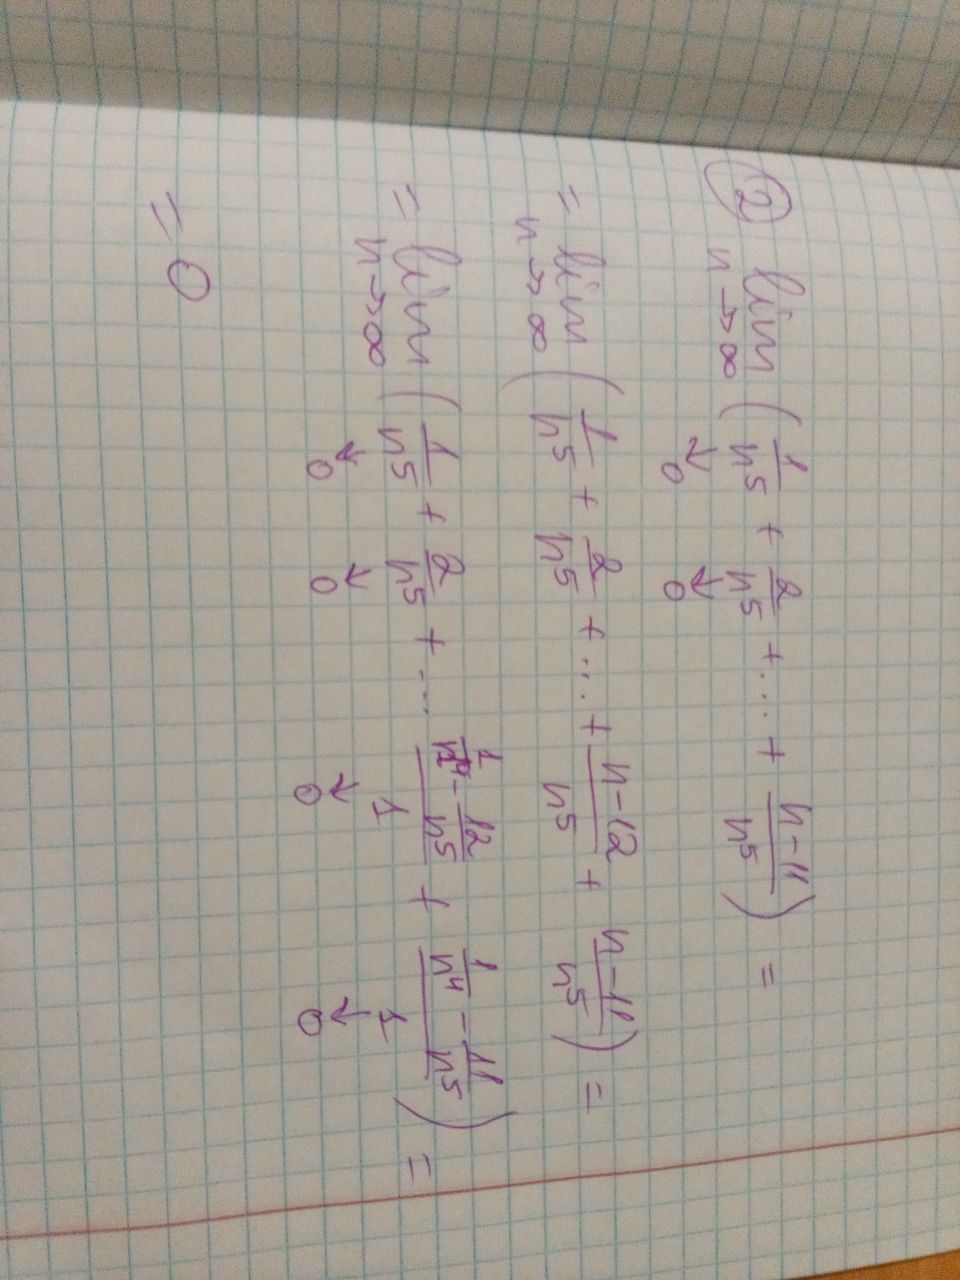 ② lim n→∞ ( 1/n⁵ + 2/n⁵ + ... + (n-11)/n⁵ ) =
↓0 ↓0
= lim n→∞ ( 1/n⁵ + 2/n⁵ + ... + (n-12)/n⁵ + (n-11)/n⁵ ) =
= lim n→∞ ( 1/n⁵ + 2/n⁵ + ... (1/n⁴ - 12/n⁵)/1 + (1/n⁴ - 11/n⁵)/1 ) =
↓0 ↓0 ↓0 ↓0
= 0